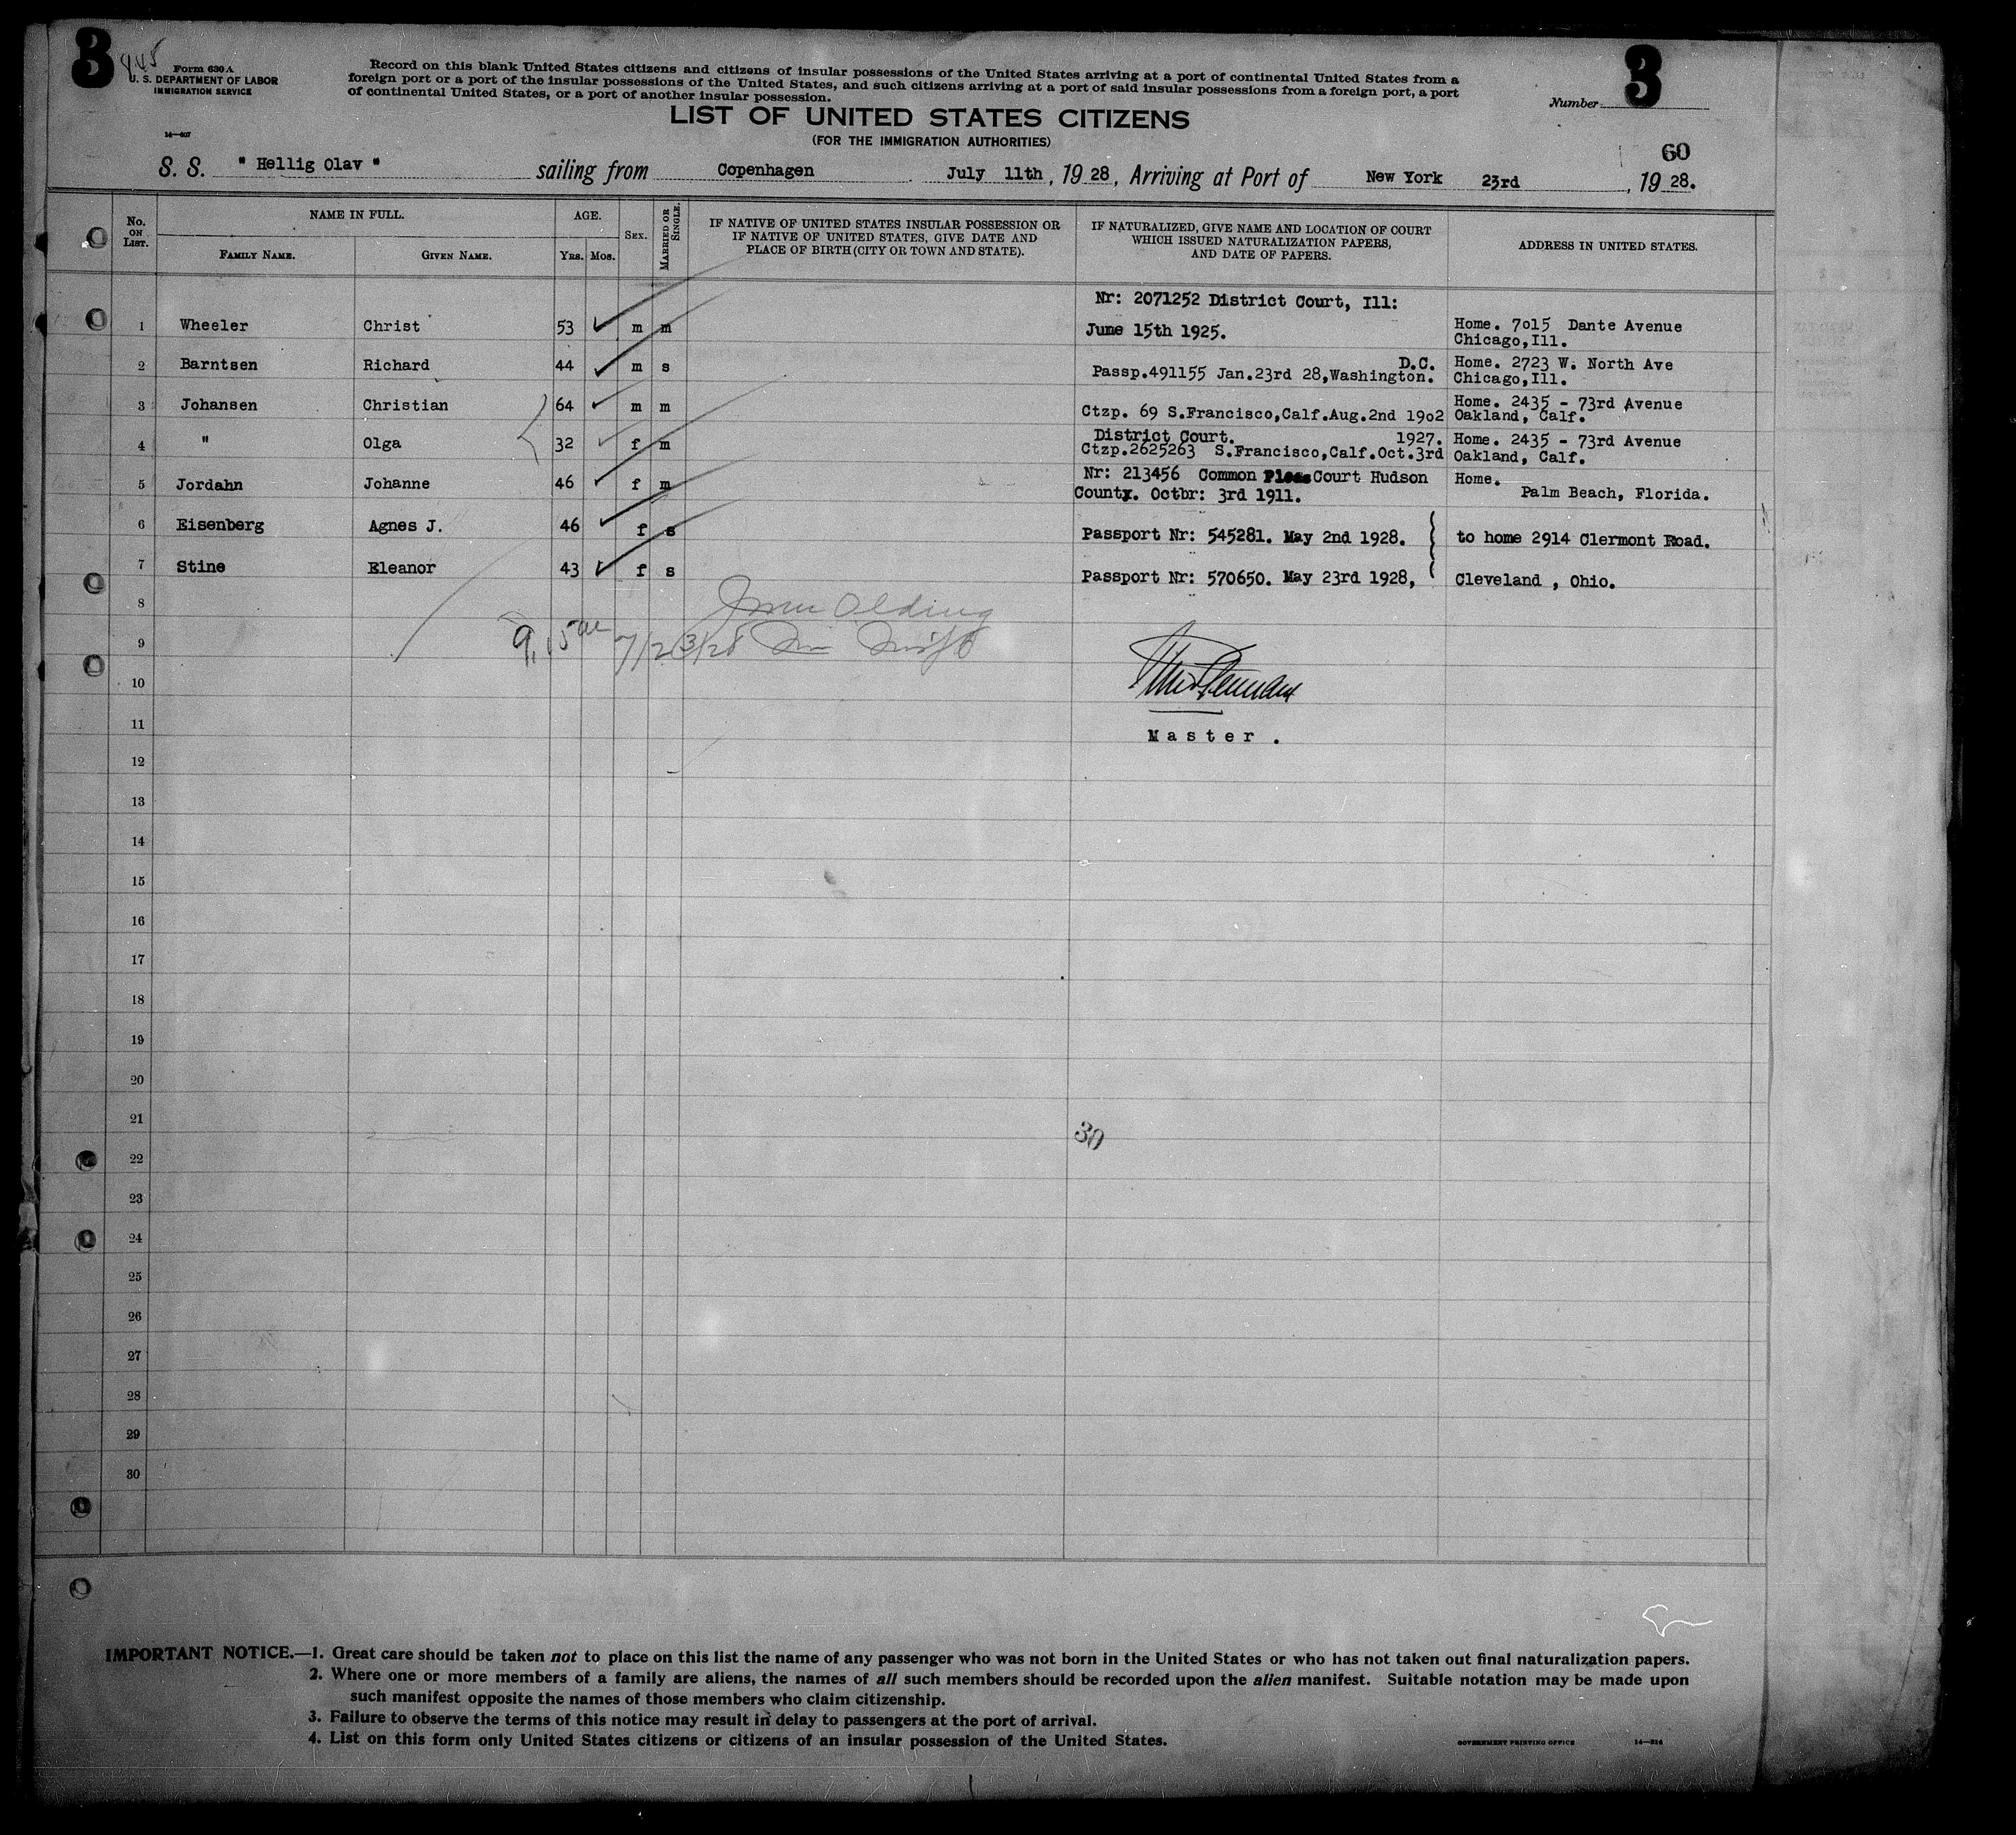 3
Form 630 A
U. S. DEPARTMENT OF LABOR
IMMIGRATION SERVICE
14—407
Record on this blank United States citizens and citizens of insular possessions of the United States arriving at a port of continental United States from a
foreign port or a port of the insular possessions of the United States, and such citizens arriving at a port of said insular possessions from a foreign port, a port
of continental United States, or a port of another insular possession.
Number 3
LIST OF UNITED STATES CITIZENS
(FOR THE IMMIGRATION AUTHORITIES)
60
S. S. " Hellig Olav " sailing from Copenhagen July 11th, 19 28, Arriving at Port of New York 23rd, 19 28.
No. ON LIST.
NAME IN FULL.
FAMILY NAME.
GIVEN NAME.
AGE.
YRS.
MOS.
SEX.
MARRIED OR SINGLE.
IF NATIVE OF UNITED STATES INSULAR POSSESSION OR
IF NATIVE OF UNITED STATES, GIVE DATE AND
PLACE OF BIRTH (CITY OR TOWN AND STATE).
IF NATURALIZED, GIVE NAME AND LOCATION OF COURT
WHICH ISSUED NATURALIZATION PAPERS,
AND DATE OF PAPERS.
ADDRESS IN UNITED STATES.
Nr: 2071252 District Court, Ill:
1 Wheeler Christ 53 m m June 15th 1925. Home. 7015 Dante Avenue
Chicago, Ill.
D.C.
2 Barntsen Richard 44 m s Passp.491155 Jan.23rd 28,Washington. Home. 2723 W. North Ave
Chicago,Ill.
3 Johansen Christian 64 m m Ctzp. 69 S.Francisco,Calf.Aug.2nd 1902 Home. 2435 - 73rd Avenue
Oakland, Calf.
District Court. 1927.
4 " Olga 32 f m Ctzp.2625263 S.Francisco,Calf.Oct.3rd Home. 2435 - 73rd Avenue
Oakland, Calf.
Nr: 213456 Common Pleas Court Hudson
5 Jordahn Johanne 46 f m County. Octbr: 3rd 1911. Home.
Palm Beach, Florida.
6 Eisenberg Agnes J. 46 f s Passport Nr: 545281. May 2nd 1928. to home 2914 Clermont Road.
7 Stine Eleanor 43 f s Passport Nr: 570650. May 23rd 1928, Cleveland , Ohio.
8
Olding
9
9.15 am 7/23/28
10
11
Master .
12
13
14
15
16
17
18
19
20
21
30
22
23
24
25
26
27
28
29
30
IMPORTANT NOTICE.—1. Great care should be taken not to place on this list the name of any passenger who was not born in the United States or who has not taken out final naturalization papers.
2. Where one or more members of a family are aliens, the names of all such members should be recorded upon the alien manifest. Suitable notation may be made upon
such manifest opposite the names of those members who claim citizenship.
3. Failure to observe the terms of this notice may result in delay to passengers at the port of arrival.
4. List on this form only United States citizens or citizens of an insular possession of the United States.
GOVERNMENT PRINTING OFFICE 14—314